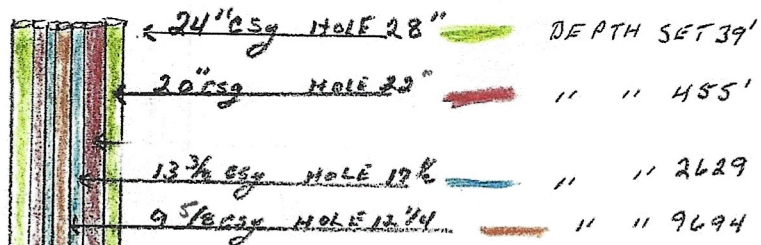 24" csg HOLE 28" DEPTH SET 39'
20" csg HOLE 22" " " 455'
13 3/8 csg HOLE 17 1/2 " " 2629
9 5/8 csg HOLE 12 1/4 " " 9694